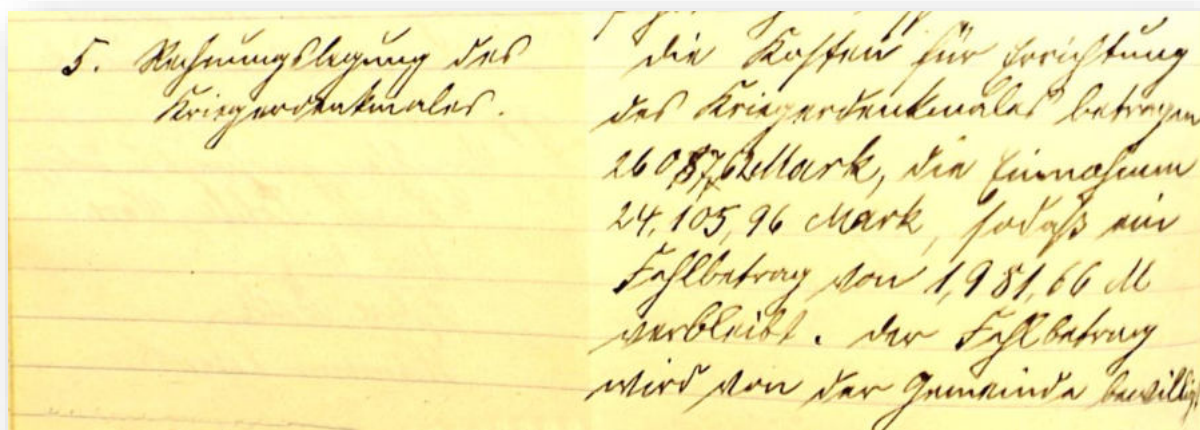 5. Rechnungslegung des
Kriegerdenkmales.
Die Kosten für Errichtung
des Kriegerdenkmales betragen
26087,62 Mark, die Einnahmen
24,105,96 Mark, sodaß ein
Fehlbetrag von 1,981,66 M
verbleibt. Der Fehlbetrag
wird von der Gemeinde bewilligt.